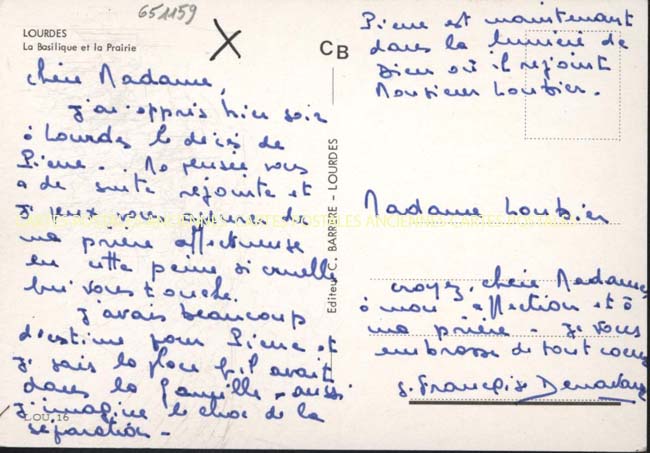 651159
LOURDES
La Basilique et la Prairie
X
chère Madame,
j'ai appris hier soir
à Lourdes le décès de
Pierre. Ma pensée vous
a de suite rejointe et
je veux vous entourer de
ma prière affectueuse
en cette peine si cruelle
qui vous touche.
J'avais beaucoup
d'estime pour Pierre et
je sais la place qu'il avait
dans la famille - aussi
j'imagine le choc de la
séparation -
LOU.16
CB
Editeur C. BARRERE - LOURDES
Pierre est maintenant
dans la lumière de
Dieu où il rejoint
Monsieur Loubier.
Madame Loubier
croyez, chère Madame,
à mon affection et à
ma prière - je vous
embrasse de tout coeur
s. Françoise
CARTES POSTALES ANCIENNES CARTES POSTALES